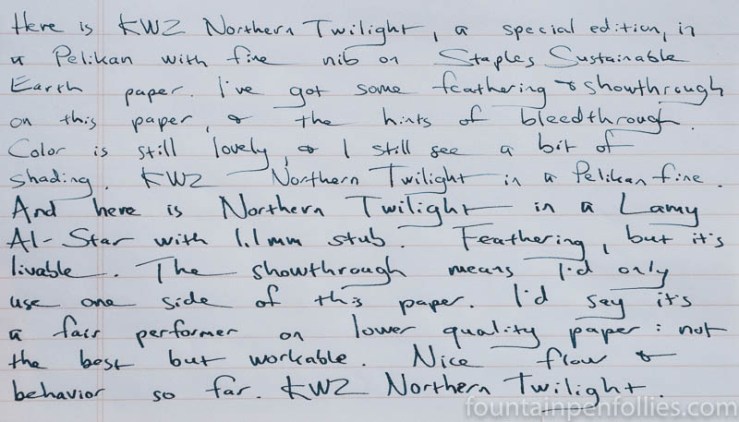 Here is KWZ Northern Twilight, a special edition, in
a Pelikan with fine nib on Staples Sustainable
Earth paper. I've got some feathering & showthrough
on this paper, & the hints of bleedthrough.
Color is still lovely, & I still see a bit of
shading. KWZ Northern Twilight in a Pelikan fine.
And here is Northern Twilight in a Lamy
Al-Star with 1.1 mm stub. Feathering, but it's
livable. The showthrough means I'd only
use one side of this paper. I'd say it's
a fair performer on lower quality paper: not
the best but workable. Nice flow &
behavior so far. KWZ Northern Twilight.
fountainpenfollies.com